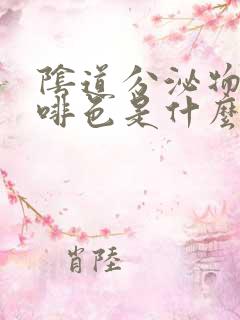 陰道分泌物
啡色是什麼
肖陸